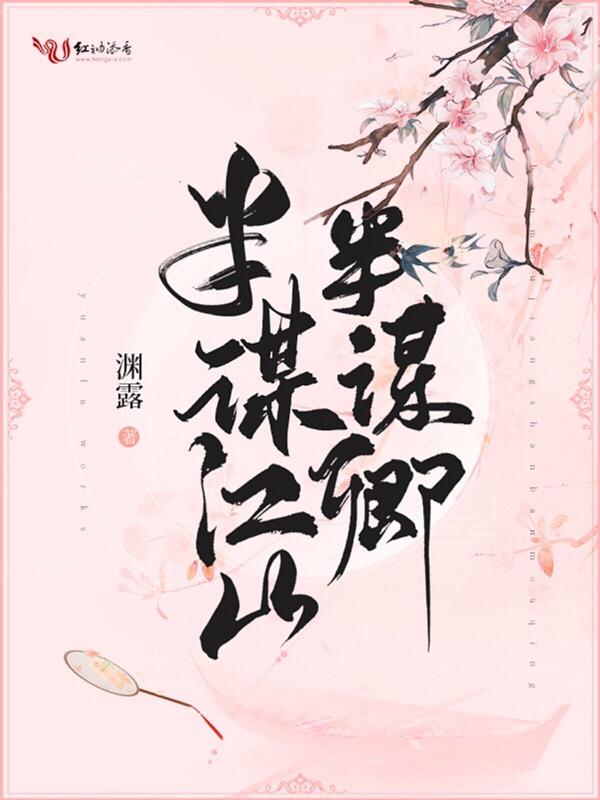 红袖添香
www.hongxiu.com
半谋江山
半谋卿
渊露
著
yuanlu works
banmoujiangshanbanmouqing